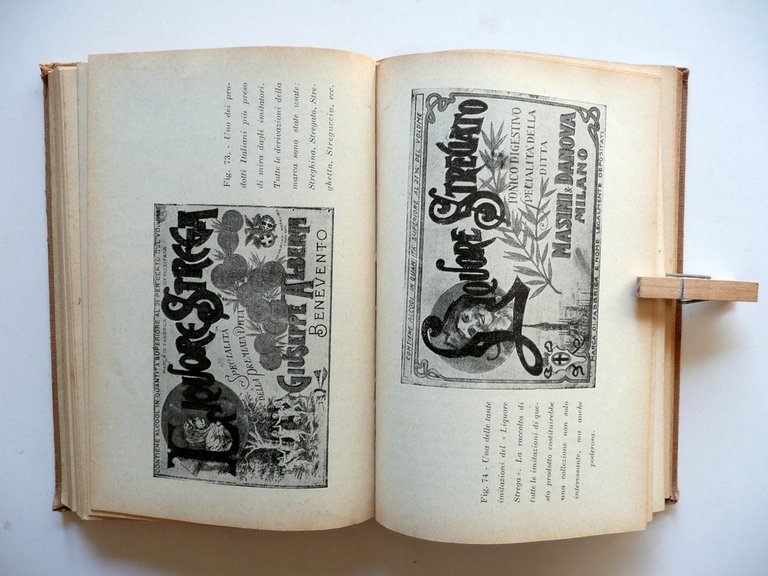 Fig. 73. - Uno dei pro-
dotti Italiani più preso
di mira dagli imitatori.
Tutte le derivazioni della
marca sono state usate:
Streghina, Stregato, Stre-
ghetta, Streguccia, ecc.
CONTIENE ALCOOL IN QUANTITÀ SUPERIORE AL 21 PER CENTO DEL VOLUME
MARCA DI FABBRICA DEPOSITATA
LIQUORE STREGA
SPECIALITÀ
DELLA PREMIATA DITTA
GIUSEPPE ALBERTI
BENEVENTO
CONTIENE ALCOOL IN QUANTITÀ SUPERIORE AL 21% DEL VOLUME
LIQUORE STREGATO
TONICO DIGESTIVO
SPECIALITÀ DELLA
DITTA
MASINI & DANOVA
MILANO
MARCA DI FABBRICA E NOME LEGALMENTE DEPOSITATI
Fig. 74 - Una delle tante
imitazioni del « Liquore
Strega ». La raccolta di
tutte le imitazioni di que-
sto prodotto costituirebbe
una collezione non solo
interesante, ma anche
poderosa.